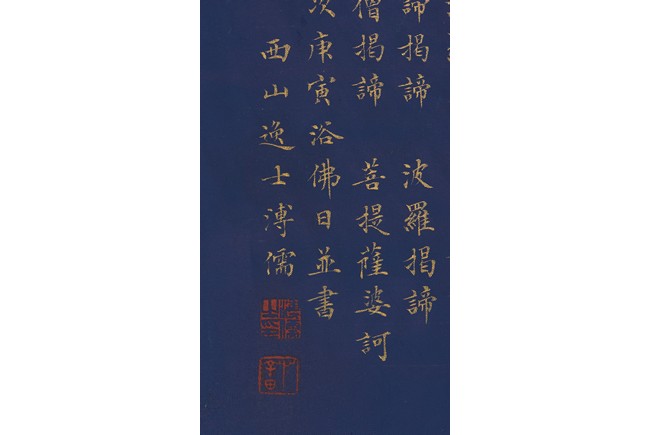 諦揭諦　波羅揭諦
僧揭諦　菩提薩婆訶
次庚寅浴佛日並書
西山逸士溥儒